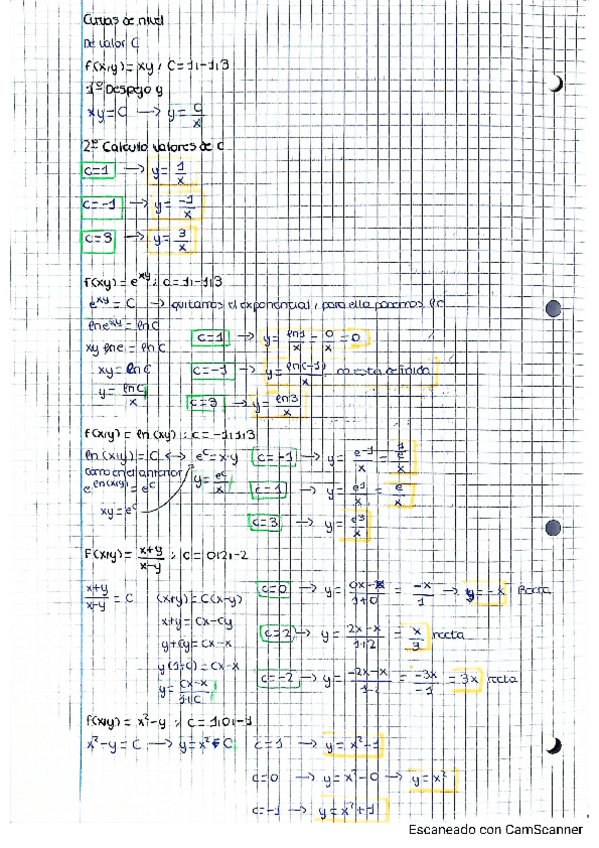 Curvas de nivel
De valor C
f(x,y) = xy ; C = 1,-1,3
1º Despejo y
xy = C → y = C/x
2º Calculo valores de c
c=1 → y = 1/x
c=-1 → y = -1/x
c=3 → y = 3/x
f(xy) = e^xy ; c = 1,-1,3
e^xy = C → quitamos el exponencial, para ello ponemos ln
ln e^xy = ln C
c=1 → y = ln1/x = 0/x = 0
xy ln e = ln C
xy = ln C
c=-1 → y = ln(-1)/x no esta definida
y = ln C/x
c=3 → y = ln3/x
f(x,y) = ln (xy) ; c = -1,1,3
ln (x,y) = C ↔ e^c = x·y
c=-1 → y = e^-1/x = 1/e/x
como en el anterior
y = e^c/x
e^ln(xy) = e^c
c=1 → y = e^1/x = e/x
xy = e^c
c=3 → y = e^3/x
f(x,y) = x+y/x-y ; c = 0,2,-2
x+y/x-y = C
(x+y) = C(x-y)
c=0 → y = 0x-x/1+0 = -x/1 → y = -x Recta
x+y = Cx-Cy
y+Cy = Cx-x
c=2 → y = 2x-x/1+2 = x/3 recta
y(1+C) = Cx-x
y = Cx-x/1+C
c=-2 → y = -2x-x/1-2 = -3x/-1 = 3x recta
f(x,y) = x²-y ; c = 1,0,-1
x²-y = C → y = x²-C
c=1 → y = x²-1
c=0 → y = x²-0 → y = x²
c=-1 → y = x²+1
Escaneado con CamScanner